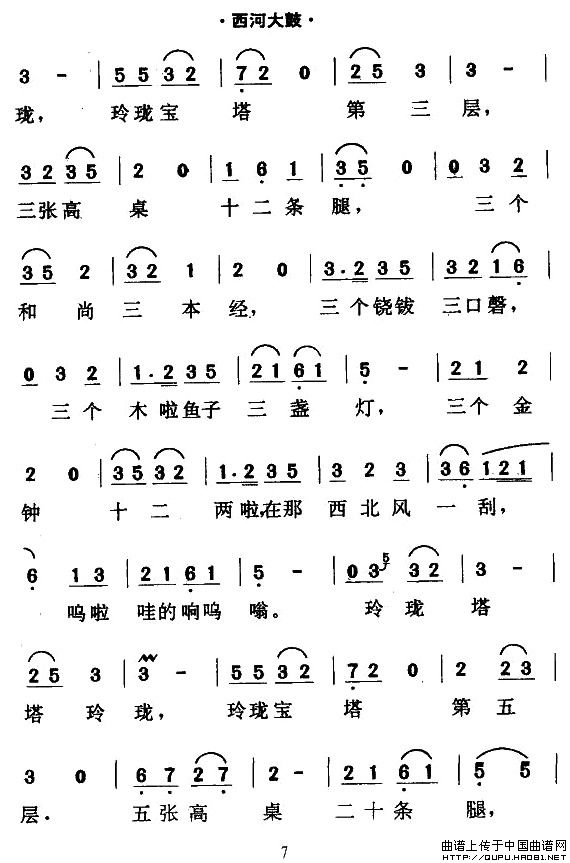 ·西河大鼓·
3 - | 5 5 3 2 | 7 2 0 | 2 5 3 | 3 - |
珑， 玲珑宝 塔 第 三 层，
3 2 3 5 | 2 0 | 1 6 1 | 3 5 0 | 0 3 2 |
三张高 桌 十二条 腿， 三个
3 5 2 | 3 2 1 | 2 0 | 3·2 3 5 | 3 2 1 6 |
和 尚 三 本 经， 三个铙钹 三口磬，
0 3 2 | 1·2 3 5 | 2 1 6 1 | 5 - | 2 1 2 |
三个 木啦鱼子 三 盏 灯， 三个金
2 0 | 3 5 3 2 | 1·2 3 5 | 3 2 3 | 3 6 1 2 1 |
钟 十二 两啦，在那 西北风 一刮，
6 1 3 | 2 1 6 1 | 5 - | 0 3 5 3 2 | 3 - |
呜啦 哇的响呜 嗡。 玲珑 塔
2 5 3 | 3 - | 5 5 3 2 | 7 2 0 | 2 2 3 |
塔 玲 珑， 玲珑宝 塔 第五
3 0 | 6 7 2 7 | 2 - | 2 1 6 1 | 5 5 |
层． 五张高 桌 二十条 腿，
7
曲谱上传于中国曲谱网
HTTP://QUPU.HAO81.NET